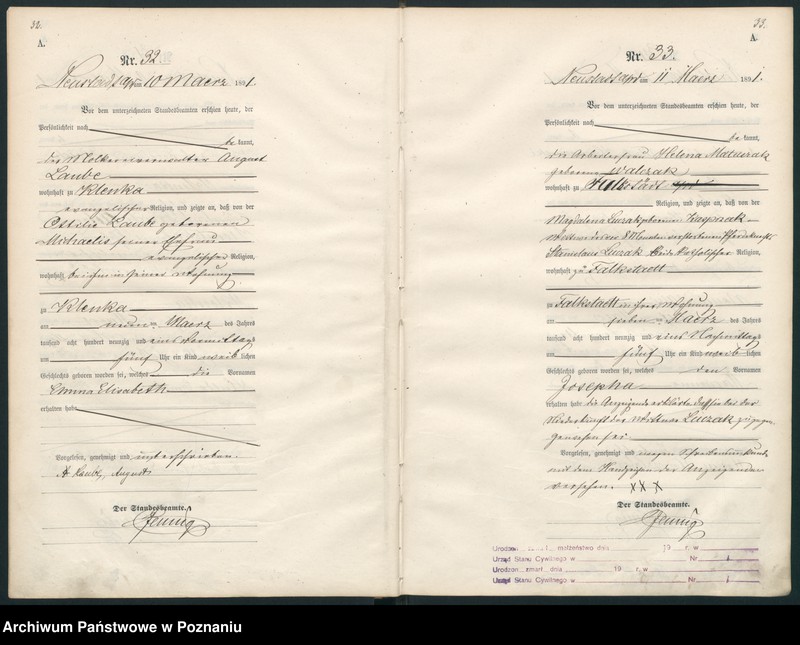 32.
A.
Nr. 32.
Neustadt a/W am 10 Maerz 1891.
Vor dem unterzeichneten Standesbeamten erschien heute, der
Persönlichkeit nach
be kannt,
der Molkereiverwalter August
Laube
wohnhaft zu Klenka
evangelischer Religion, und zeigte an, daß von der
Ottilie Laube geborenen
Michaelis seiner Ehefrau
evangelischer Religion,
wohnhaft bei ihm in seiner Wohnung
zu Klenka
am neun ten Maerz des Jahres
tausend acht hundert neunzig und eins Vormittags
um fünf Uhr ein Kind weib lichen
Geschlechts geboren worden sei, welches die Vornamen
Emma Elisabeth
erhalten habe
Vorgelesen, genehmigt und unterschrieben.
Laube, August
Der Standesbeamte.
33.
A.
Nr. 33.
Neustadt am 11 Maerz 1891.
Vor dem unterzeichneten Standesbeamten erschien heute, der
Persönlichkeit nach
be kannt,
die Arbeiterfrau Helena
geborene Walczak
wohnhaft zu
Religion, und zeigte an, daß von der
Magdalena Luczak geborenen Kasprzak
Wittwe des vor 8 Monaten verstorbenen Pferdeknechts
Stanislaus Luczak beide katholischer Religion,
wohnhaft zu Falkstadt
zu Falkstadt in ihrer Wohnung
am sieben ten Maerz des Jahres
tausend acht hundert neunzig und eins Nachmittags
um fünf Uhr ein Kind weib lichen
Geschlechts geboren worden sei, welches den Vornamen
Josepha
erhalten habe die Anzeigende erklärte daß sie bei der
Niederkunft der Wittwe Luczak zugegen
gewesen sei.
Vorgelesen, genehmigt und wegen Schreibensunkunde
mit dem Handzeichen der Anzeigenden
versehen. XXX
Der Standesbeamte.
Urodzon małżeństwo dnia 19 r. w
Urząd Stanu Cywilnego w Nr
Urodzon zmarł dnia 19 r. w
Urząd Stanu Cywilnego w Nr
Archiwum Państwowe w Poznaniu